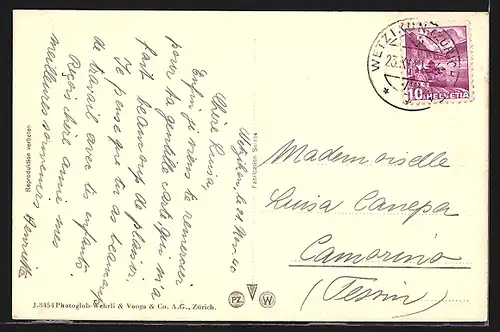 Wetzikon, le 21 Nov. 40
Chère Luisa,
Enfin je viens te remercier
pour ta gentille carte qui m'a
fait beaucoup de plaisir.
Je pense que tu as beaucoup
de travail avec tes enfants.
Reçois chère amie mes
meilleures souvenirs Henriette
Reproduktion verboten
Fabrication Suisse
J.8454 Photoglob-Wehrli & Vouga & Co. A.G., Zürich.
PZ W
WETZIKON (ZÜRICH)
10 HELVETIA
Mademoiselle
Luisa Canepa
Camorino
(Tessin)